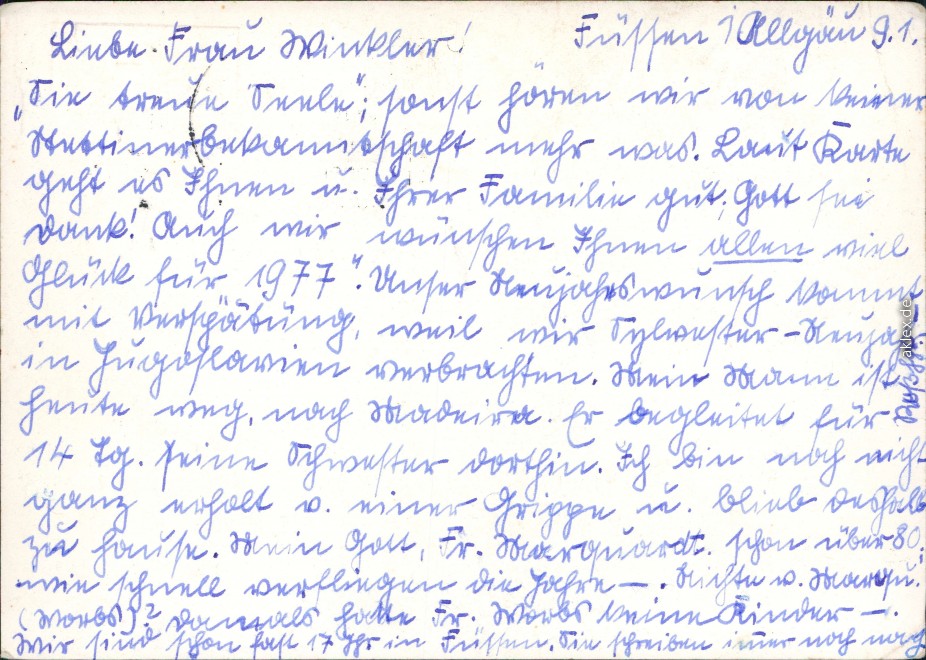 Liebe Frau Winkler! Füssen / Allgäu 9.1.
„Sie treue Seele“; sonst hören wir von keiner
Stettinerbekanntschaft mehr was. Laut Karte
geht es Ihnen u. Ihrer Familie gut, Gott sei
Dank! Auch wir wünschen Ihnen allen viel
Glück für 1977“. Unser Neujahrswunsch kommt
mit Verspätung, weil wir Sylvester-Neujahr
in Jugoslavien verbrachten. Mein Mann ist
heute weg, nach Madeira. Er begleitet für
14 Tg. seine Schwester dorthin. Ich bin noch nicht
ganz erholt v. einer Grippe u. blieb deshalb
zu Hause. Mein Gott, Fr. Marquardt. schon über 80,
wie schnell verfliegen die Jahre —. Nichte v. Marqu.
(Worbs)? Damals hatte Fr. Worbs keine Kinder —.
Wir sind schon fast 17 Jhr in Füssen. Sie schreiben imer noch nach
aklex.de